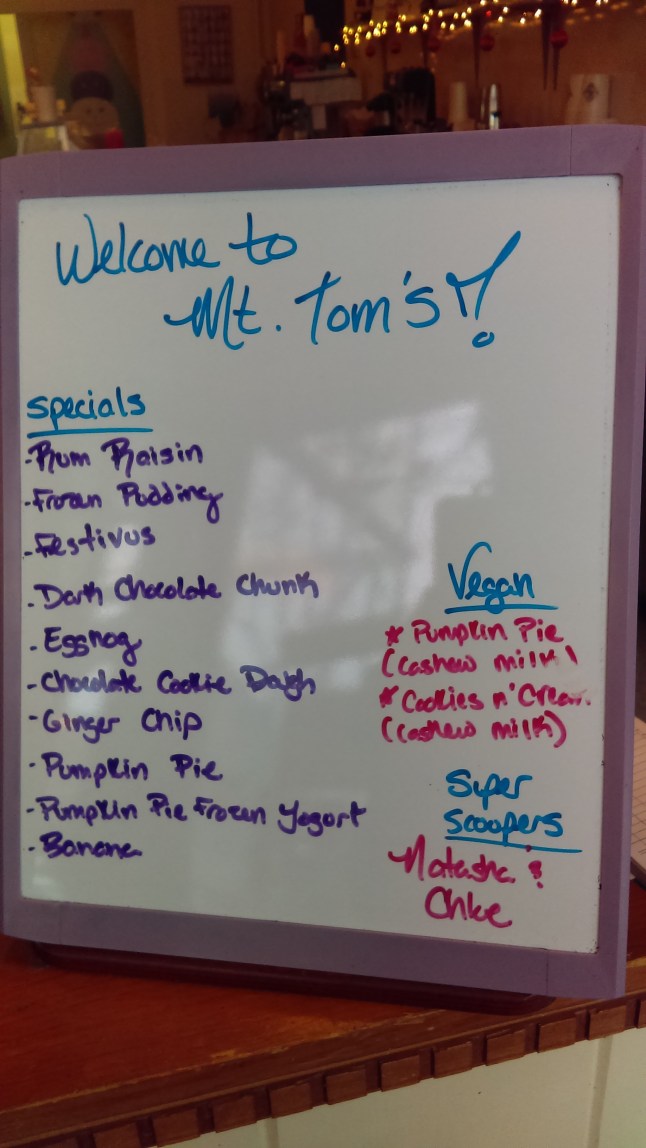 Welcome to
Mt. Tom's!
Specials
- Rum Raisin
- Frozen Pudding
- Festivus
- Dark Chocolate Chunk
- Eggnog
- Chocolate Cookie Dough
- Ginger Chip
- Pumpkin Pie
- Pumpkin Pie Frozen Yogort
- Banana
Vegan
* Pumpkin Pie
(cashew milk)
* Cookies n' Cream
(cashew milk)
Super
Scoopers
Natasha &
Chloe